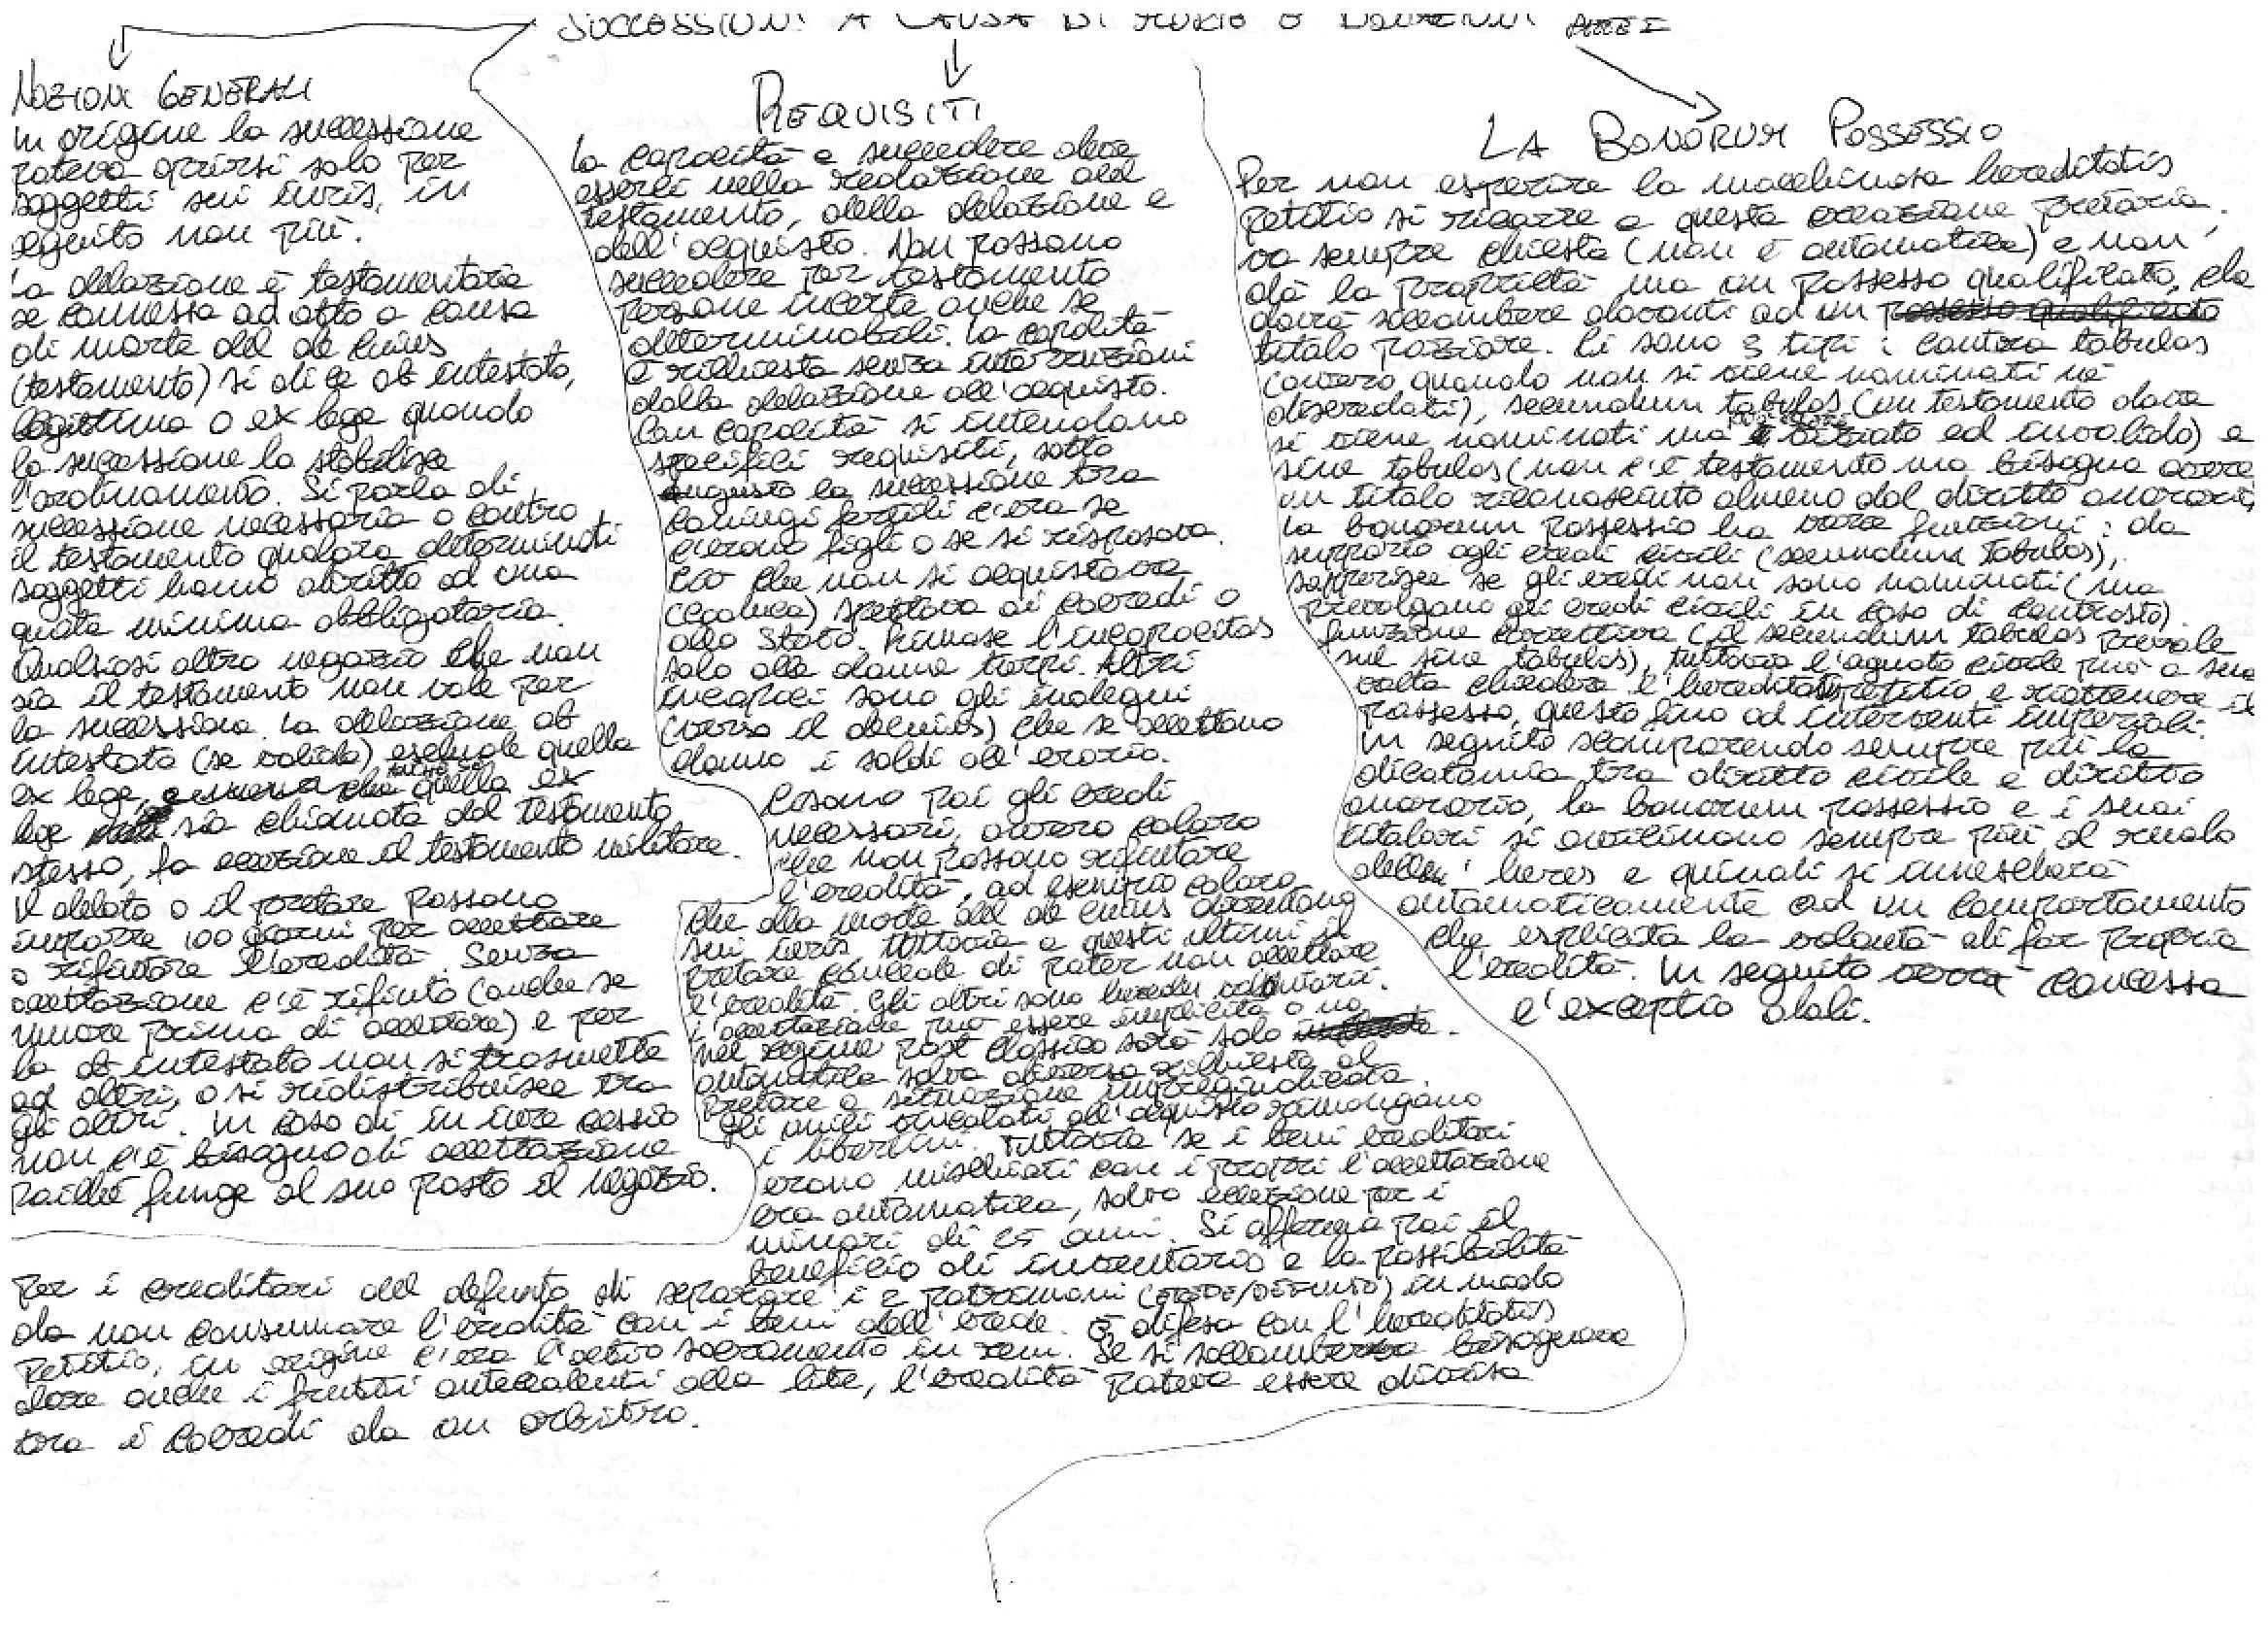 SUCCESSIONI A CAUSA DI MORTE E DONAZIONI PARTE I
NOZIONI GENERALI
In origine la successione
poteva aprirsi solo per
soggetti sui iuris, in
seguito non più.
La delazione è testamentaria
se connessa ad atto a causa
di morte del de cuius
(testamento) si dice ab intestato,
legittima o ex lege quando
la successione la stabilisce
l'ordinamento. Si parla di
successione necessaria o contro
il testamento qualora determinati
soggetti hanno diritto ad una
quota minima obbligatoria.
Qualsiasi altro negozio che non
sia il testamento non vale per
la successione. La delazione ab
intestato (se valida) esclude quella
ex lege, quella ex
lege sia chiamata dal testamento
stesso, fa eccezione il testamento militare.
Il delato o il pretore possono
imporre 100 giorni per accettare
o rifiutare l'eredità. Senza
accettazione c'è rifiuto (anche se
muore prima di accettare) e per
la ab intestato non si trasmette
ad altri, o si ridistribuisce tra
gli altri. In caso di in iure cessio
non c'è bisogno di accettazione
poiché funge al suo posto il negozio.
REQUISITI
La capacità a succedere deve
esserci nella redazione del
testamento, della delazione e
dell'acquisto. Non possono
succedere per testamento
persone incerte anche se
determinabili. La capacità
è richiesta senza interruzioni
dalla delazione all'acquisto.
Con capacità si intendono
specifici requisiti, sotto
Augusto la successione tra
coniugi fertili c'era se
c'erano figli o se si risposava.
Ciò che non si acquistava
(caduca) spettava ai coeredi o
allo Stato. Rimase l'incapacitas
solo alle donne turpi. Altri
incapaci sono gli indegni
(verso il decuius) che se accettano
danno i soldi all'erario.
Ci sono poi gli eredi
necessari, ovvero coloro
che non possono rifiutare
l'eredità, ad esempio coloro
che alla morte del de cuius diventano
sui iuris tuttavia a questi ultimi il
pretore concede di poter non accettare
l'eredità. Gli altri sono heredes volontari.
L'accettazione può essere implicita o no
nel regime post classico sarà solo
automatica salvo diversa richiesta al
pretore o situazione impregiudicata.
Gli unici vincolati all'acquisto rimangono
i libertini. Tuttavia se i beni ereditari
erano mischiati con i propri l'accettazione
era automatica, salvo eccezione per i
minori di 25 anni. Si afferma poi il
beneficio di inventario e la possibilità
per i creditori del defunto di separare i 2 patrimoni (EREDE/DEFUNTO) in modo
da non consumare l'eredità con i beni dell'erede. È difesa con l'hereditatis
petitio, in origine c'era l'actio sacramento in rem. Se si soccombeva bisognava
dare anche i frutti antecedenti alla lite, l'eredità poteva essere divisa
tra i coeredi da un arbitro.
LA BONORUM POSSESSIO
Per non esperire la macchinosa hereditatis
petitio si ricorre a questa creazione pretoria,
va sempre chiesta (non è automatica) e non
dà la proprietà ma un possesso qualificato, che
dovrà soccombere davanti ad un possesso qualificato
titolo poziore. Ci sono 3 tipi: contra tabulas
(ovvero quando non si viene nominati né
diseredati), secundum tabulas (un testamento dove
si viene nominati ma è viziato ed invalido) e
sine tabulas (non c'è testamento ma bisogna avere
un titolo riconosciuto almeno dal diritto onorario)
La bonorum possessio ha varie funzioni: da
supporto agli eredi civili (secundum tabulas),
sopperisce se gli eredi non sono nominati (ma
prevalgono gli eredi civili in caso di contrasto).
funzione correttiva (il secundum tabulas prevale
sul sine tabulas), tuttavia l'agnato civile può a sua
volta chiedere l'hereditatis petitio e riottenere il
possesso, questo fino ad interventi imperiali.
In seguito scomparendo sempre più la
dicotomia tra diritto civile e diritto
onorario, la bonorum possessio e i suoi
titolari si avvicinano sempre più al ruolo
dell' heres e quindi si innescherà
automaticamente ad un comportamento
che esplicita la volontà di far propria
l'eredità. In seguito verrà concessa
l'exceptio doli.